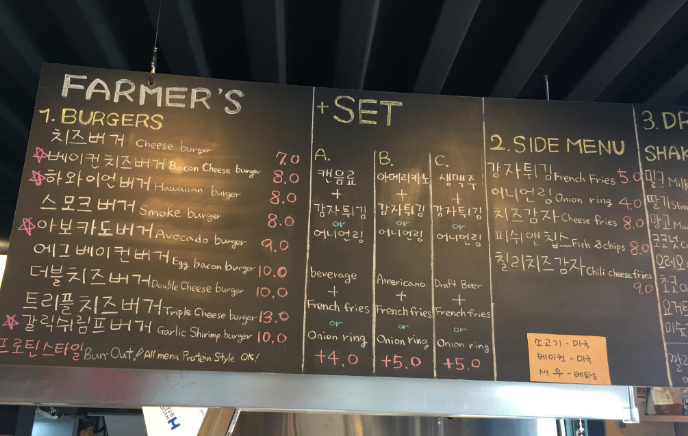 FARMER'S
1. BURGERS
치즈버거 Cheese burger 7.0
베이컨치즈버거 Bacon Cheese burger 8.0
하와이언버거 Hawaiian burger 8.0
스모크버거 Smoke burger 8.0
아보카도버거 Avocado burger 9.0
에그베이컨버거 Egg bacon burger 10.0
더블치즈버거 Double Cheese burger 10.0
트리플치즈버거 Triple Cheese burger 13.0
갈릭쉬림프버거 Garlic Shrimp burger 10.0
프로틴스타일 Bun Out! All menu Protein Style OK!
+SET
A.
캔음료
+
감자튀김
or
어니언링
beverage
+
French fries
or
Onion ring
+4.0
B.
아메리카노
+
감자튀김
or
어니언링
Americano
+
French fries
or
Onion ring
+5.0
C.
생맥주
+
감자튀김
or
어니언링
Draft Beer
+
French fries
or
Onion ring
+5.0
2. SIDE MENU
감자튀김 French Fries 5.0
어니언링 Onion ring 4.0
치즈감자 Cheese fries 8.0
피쉬앤칩스 Fish & chips 8.0
칠리치즈감자 Chili cheese fries
9.0
소고기 - 미국
베이컨 - 미국
새우 - 베트남
3. DR
SHAK
밀크 Milk
딸기 Sha